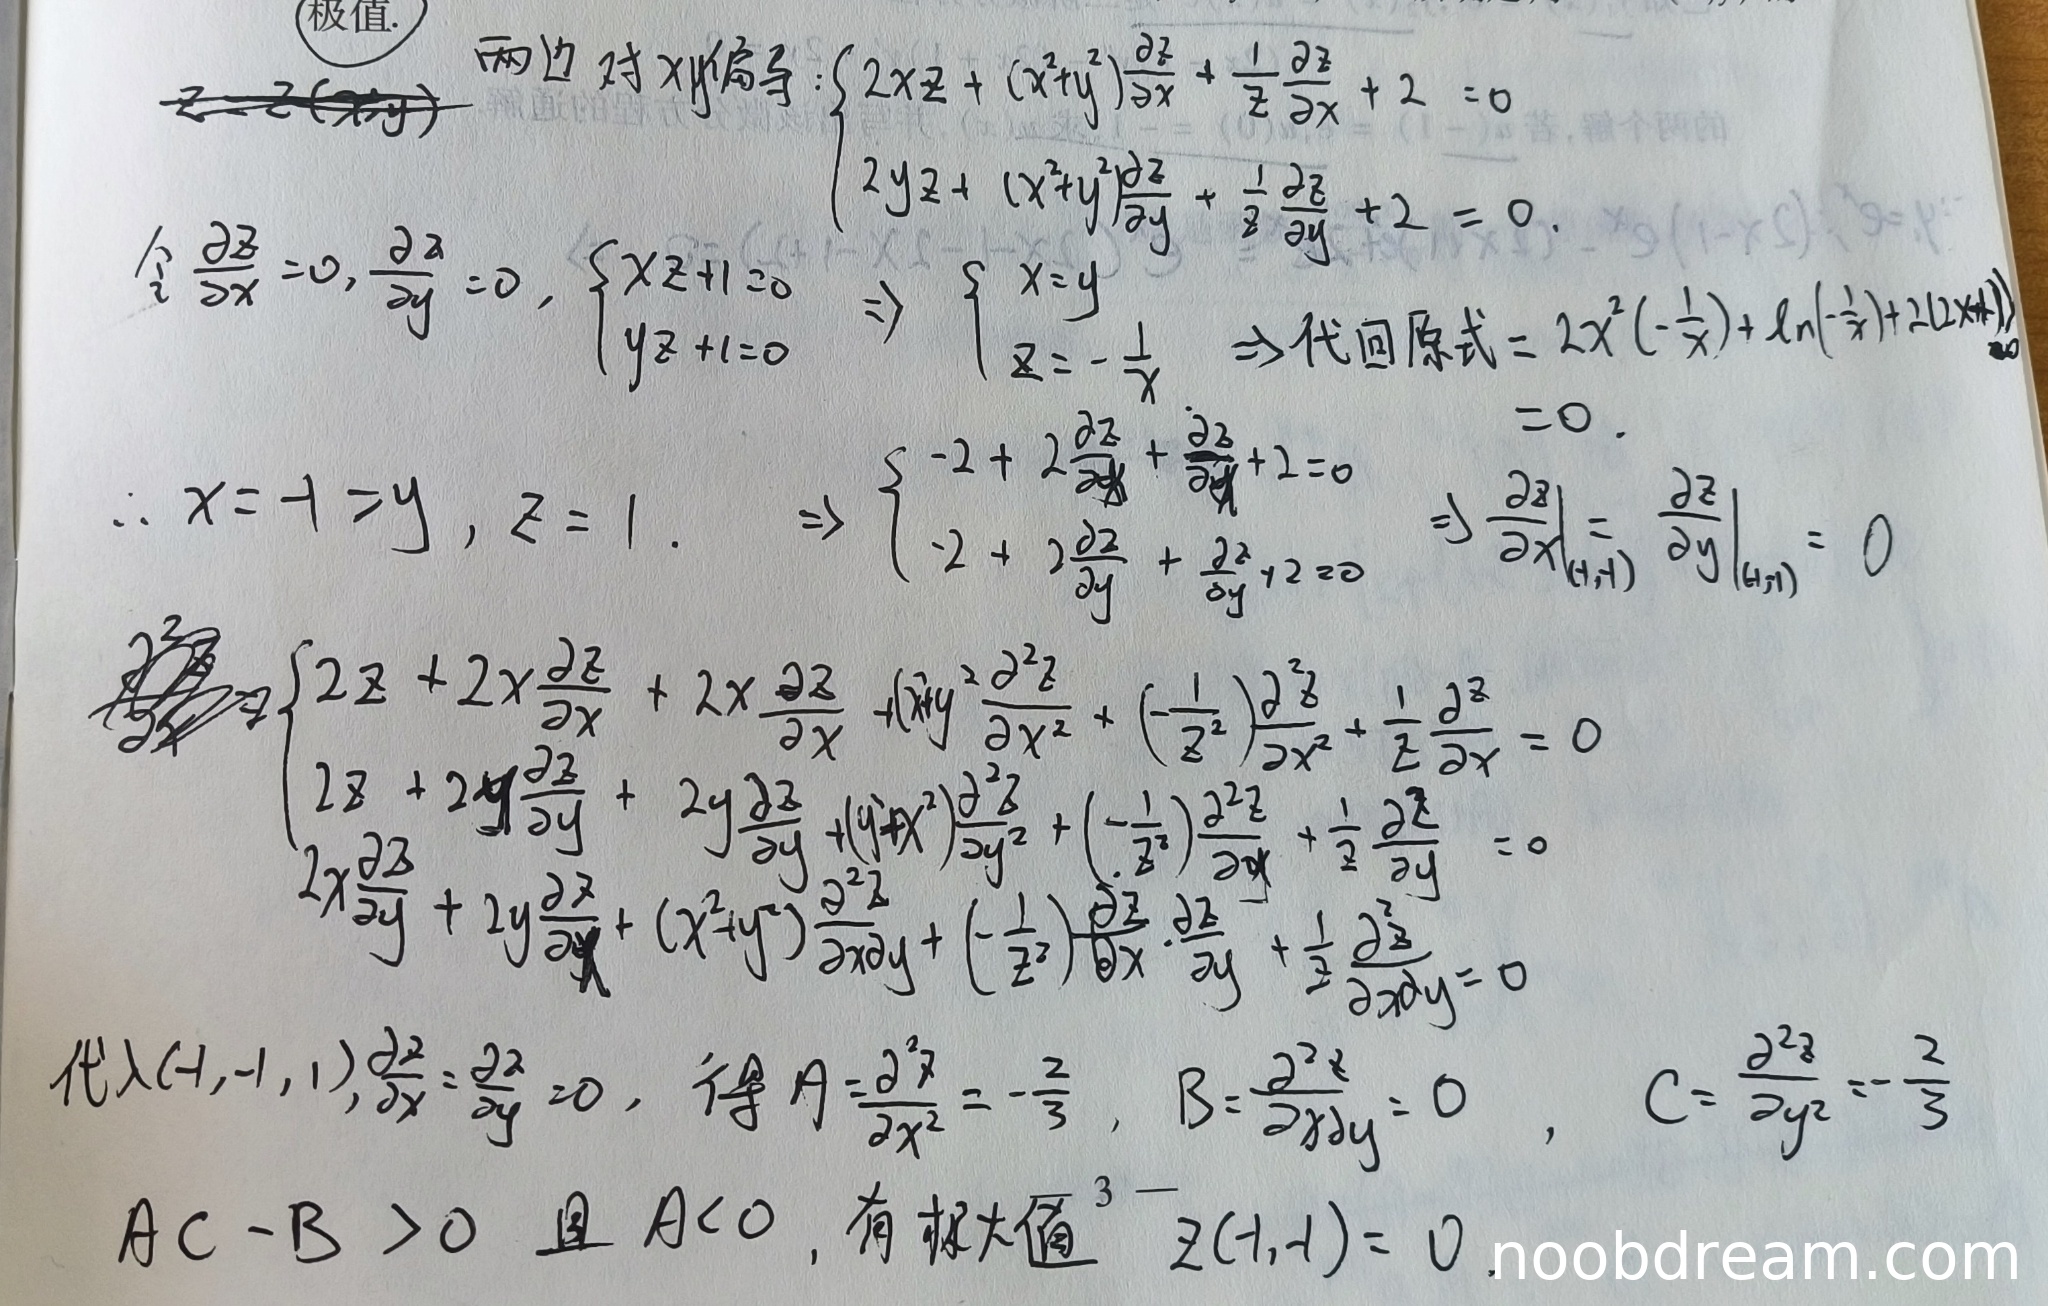 极值.
两边对xy偏导: { 2xz + (x²+y²)∂z/∂x + 1/z ∂z/∂x + 2 = 0
2yz + (x²+y²)∂z/∂y + 1/z ∂z/∂y + 2 = 0.
令 ∂z/∂x = 0, ∂z/∂y = 0, { xz+1=0 yz+1=0 ⇒ { x=y z=-1/x ⇒ 代回原式 = 2x²(-1/x) + ln(-1/x) + 2(2x+1)
= 0.
∴ x = -1 = y, z = 1. ⇒ { -2 + 2∂z/∂x + ∂z/∂x + 2 = 0 -2 + 2∂z/∂y + ∂z/∂y + 2 = 0 ⇒ ∂z/∂x|(-1,-1) = ∂z/∂y|(-1,-1) = 0
⇒ { 2z + 2x ∂z/∂x + 2x ∂z/∂x + (x²+y² ∂²z/∂x² + (-1/z²)∂²z/∂x² + 1/z ∂z/∂x = 0
2z + 2y ∂z/∂y + 2y ∂z/∂y + (y²+x²)∂²z/∂y² + (-1/z²)∂²z/∂y + 1/z ∂z/∂y = 0
2x ∂z/∂y + 2y ∂z/∂x + (x²+y²)∂²z/∂x∂y + (-1/z²)∂z/∂x · ∂z/∂y + 1/z ∂²z/∂x∂y = 0
代入(-1,-1,1), ∂z/∂x = ∂z/∂y = 0, 得 A = ∂²z/∂x² = -2/3, B = ∂²z/∂x∂y = 0, C = ∂²z/∂y² = -2/3
AC - B > 0 且 A < 0, 有极大值 z(-1,-1) = 0.
3 —
noobdream.com